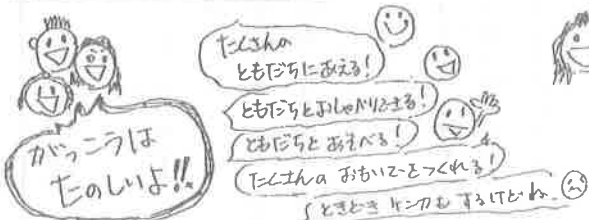 がっこうは
たのしいよ!!
たくさんの
ともだちにあえる!
ともだちとおしゃべりできる!
ともだちとあそべる!
たくさんの おもいでをつくれる!
ときどき ケンカも するけどね